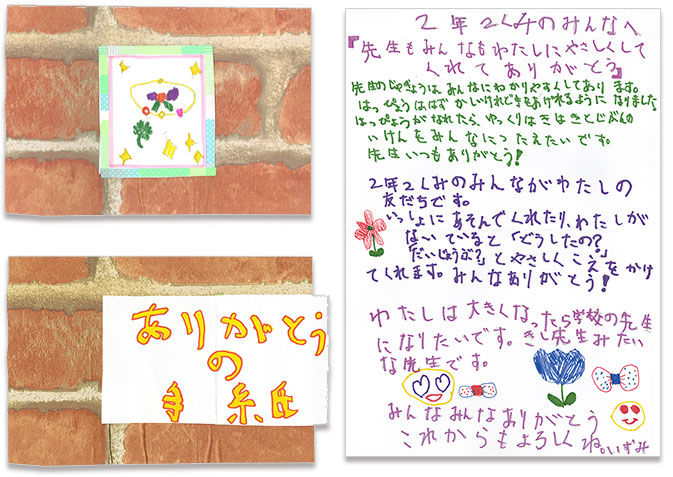 ありがとう
の
手紙
2年2くみのみんなへ
『先生もみんなもわたしにやさしくして
くれてありがとう』
先生のじゅぎょうはみんなにわかりやすくしてあります。
はっぴょうははずかしいけれどきをあげれるようになりました。
はっぴょうがなれたら、ゆっくりはきはきとじぶんの
いけんをみんなにつたえたいです。
先生いつもありがとう!
2年2くみのみんながわたしの
友だちです。
いっしょにあそんでくれたり、わたしが
ないていると「どうしたの?
だいじょうぶ?」とやさしくこえをかけ
てくれます。みんなありがとう!
わたしは大きくなったら学校の先生
になりたいです。きし先生みたい
な先生です。
みんなみんなありがとう
これからもよろしくね。いずみ